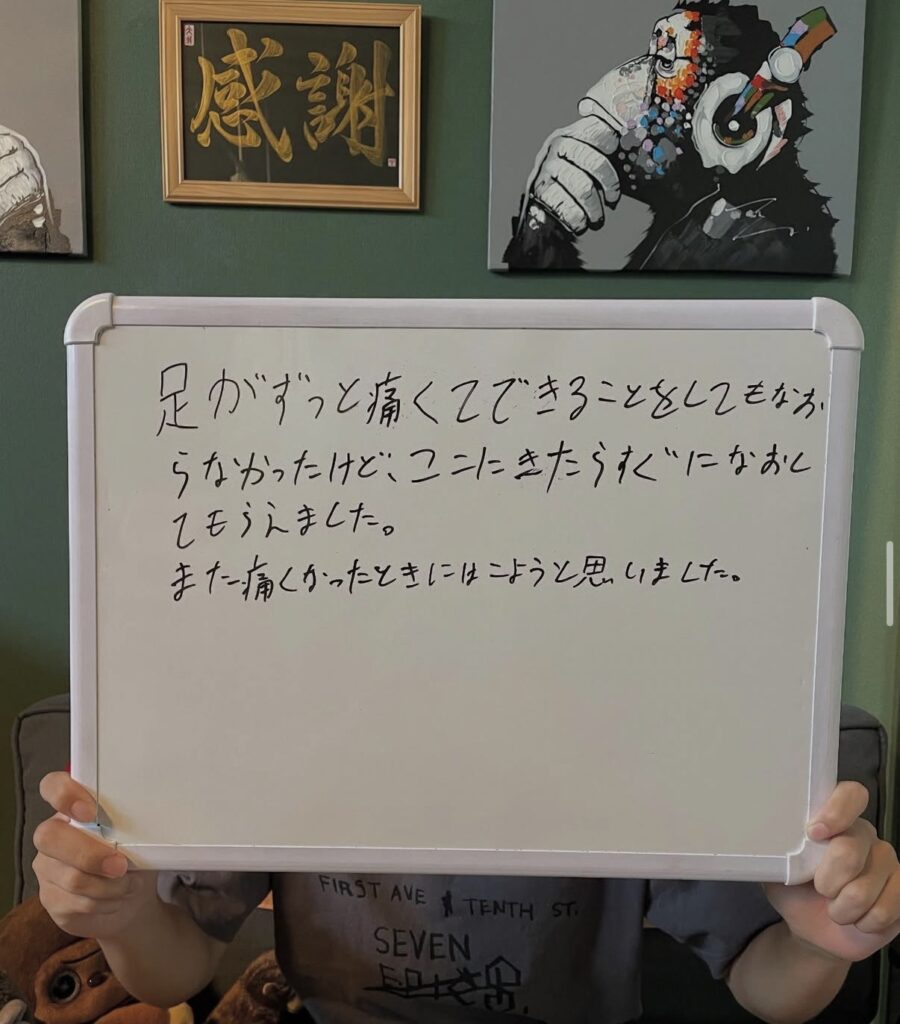 感謝
足がずっと痛くてできることをしてもなお
らなかったけど、ここにきたらすぐになおし
てもらえました。
また痛くなったときにはこようと思いました。
FIRST AVE & TENTH ST.
SEVEN